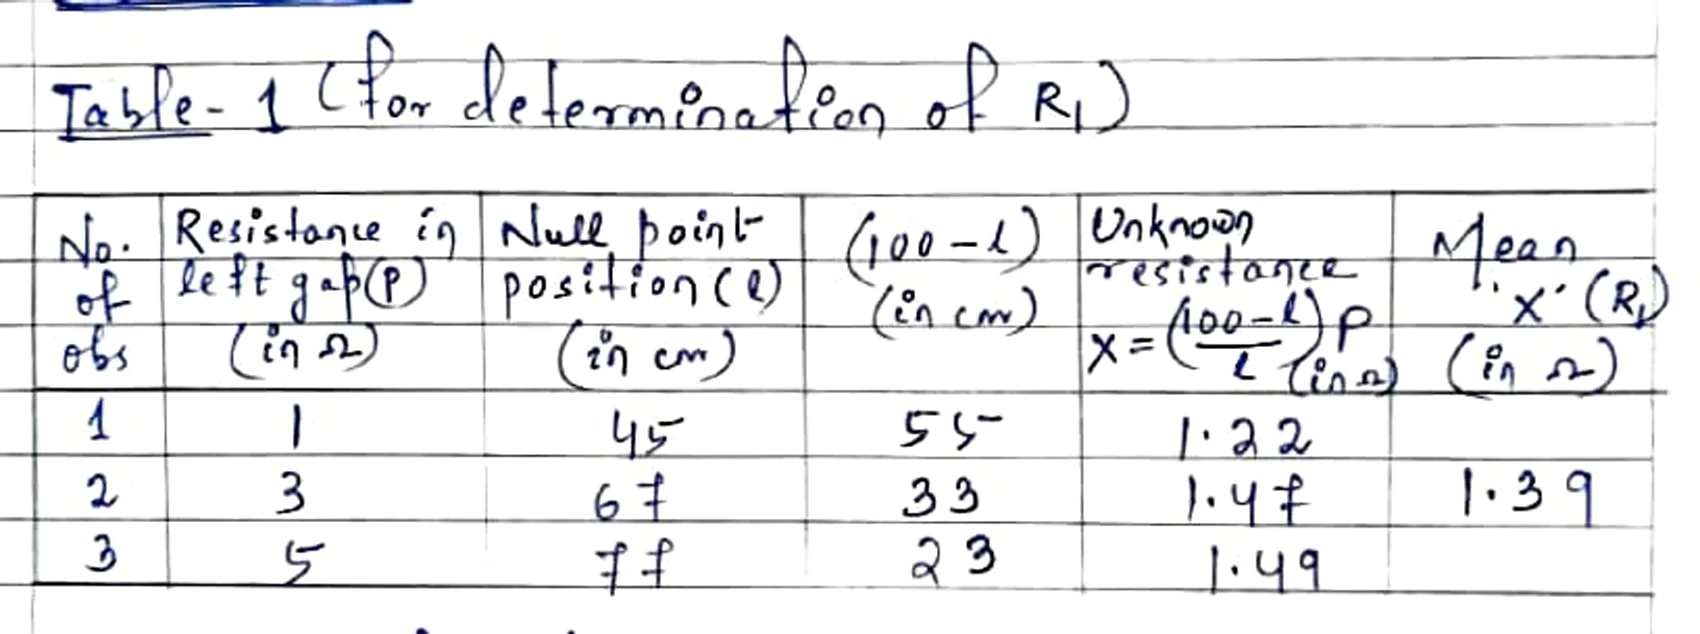 Table-1 (for determination of R₁)
No. of obs | Resistance in left gap(P) (in Ω) | Null point position (l) (in cm) | (100-l) (in cm) | Unknown resistance X = ((100-l)/l) P (in Ω) | Mean 'X' (R₁) (in Ω)
1 | 1 | 45 | 55 | 1.22
2 | 3 | 67 | 33 | 1.47 | 1.39
3 | 5 | 77 | 23 | 1.49